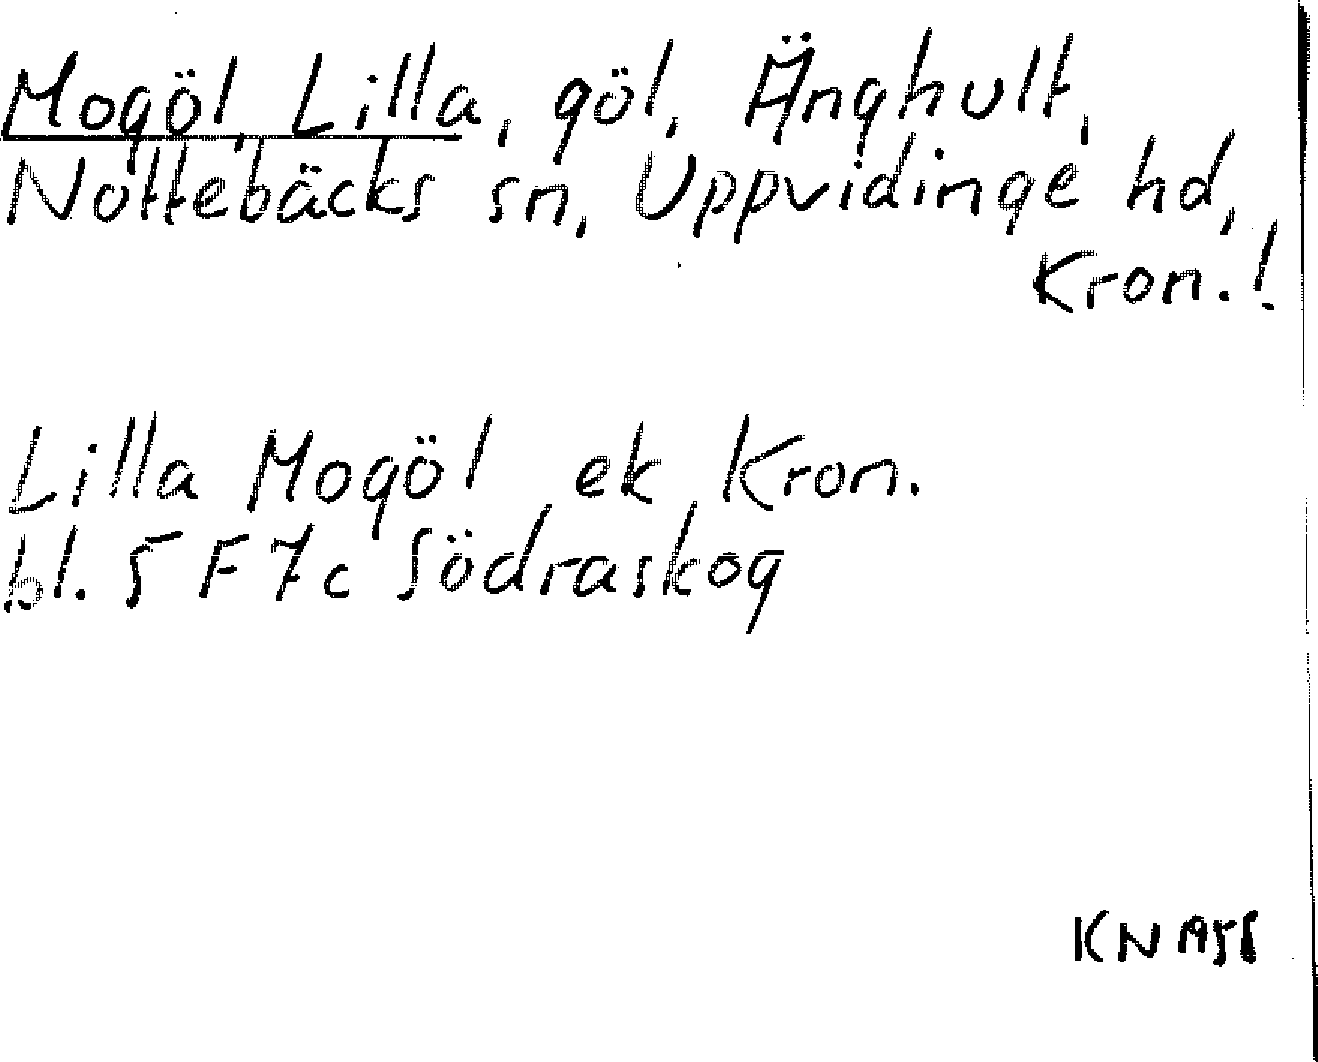 Mogöl, Lilla, göl, Änghult,
Nottebäcks sn, Uppvidinge hd,
Kron.!
Lilla Mogöl ek Kron.
bl. 5 F 7c Södraskog
KN